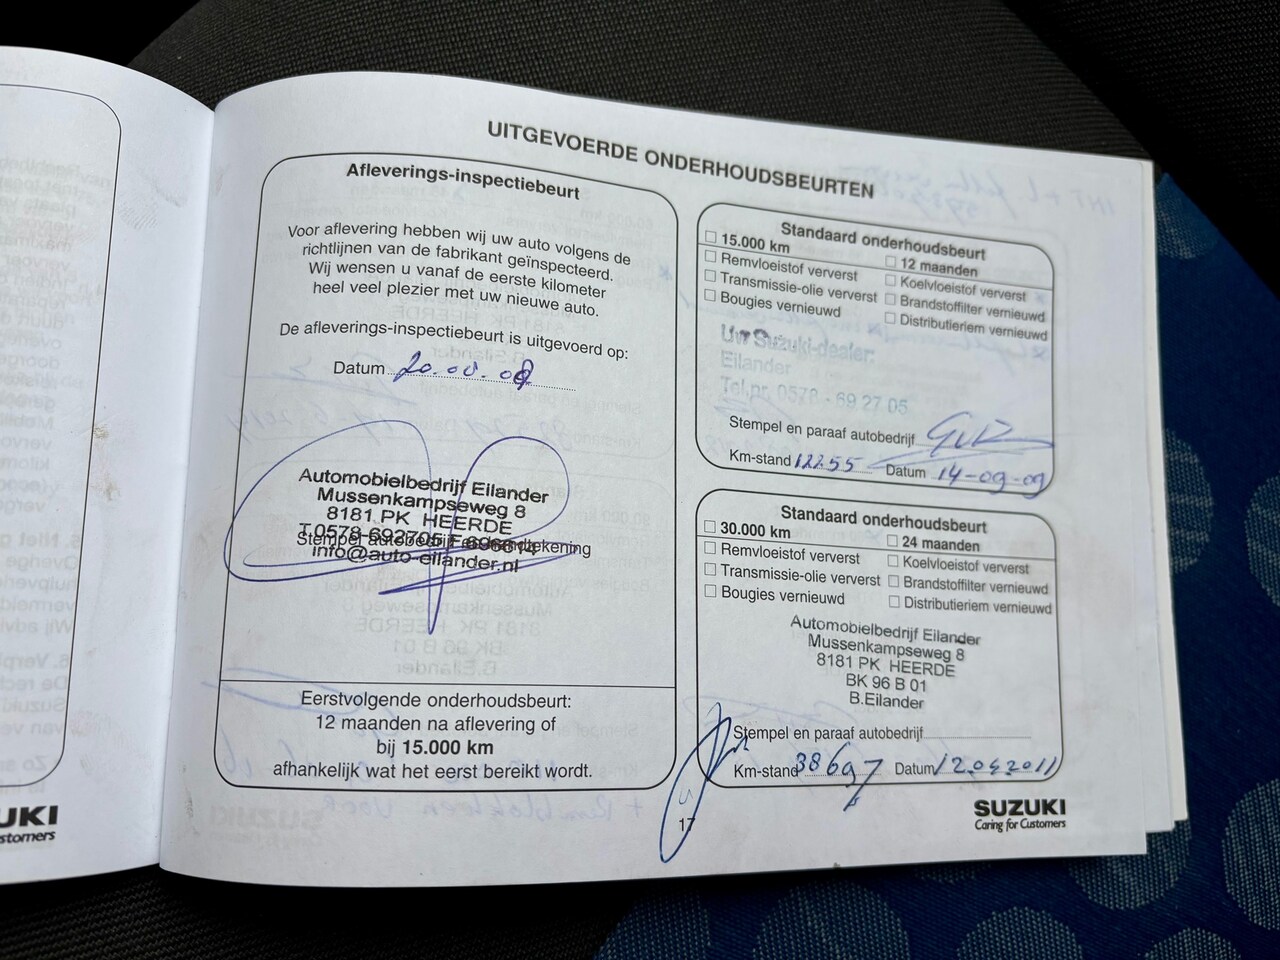 UITGEVOERDE ONDERHOUDSBEURTEN
Afleverings-inspectiebeurt
Voor aflevering hebben wij uw auto volgens de
richtlijnen van de fabrikant geïnspecteerd.
Wij wensen u vanaf de eerste kilometer
heel veel plezier met uw nieuwe auto.
De afleverings-inspectiebeurt is uitgevoerd op:
Datum 20.08.08
Automobielbedrijf Eilander
Mussenkampseweg 8
8181 PK HEERDE
T.0578-692705 F 696614
Stempel autobedrijf en handtekening
info@auto-eilander.nl
Eerstvolgende onderhoudsbeurt:
12 maanden na aflevering of
bij 15.000 km
afhankelijk wat het eerst bereikt wordt.
Standaard onderhoudsbeurt
15.000 km 12 maanden
Remvloeistof ververst Koelvloeistof ververst
Transmissie-olie ververst Brandstoffilter vernieuwd
Bougies vernieuwd Distributieriem vernieuwd
Uw Suzuki-dealer:
Eilander
Tel.nr. 0578 - 69 27 05
Stempel en paraaf autobedrijf
Km-stand 12255 Datum 14-09-09
Standaard onderhoudsbeurt
30.000 km 24 maanden
Remvloeistof ververst Koelvloeistof ververst
Transmissie-olie ververst Brandstoffilter vernieuwd
Bougies vernieuwd Distributieriem vernieuwd
Automobielbedrijf Eilander
Mussenkampseweg 8
8181 PK HEERDE
BK 96 B 01
B.Eilander
Stempel en paraaf autobedrijf
Km-stand 38697 Datum 12.04.2011
17
SUZUKI
Caring for Customers
UKI
stomers